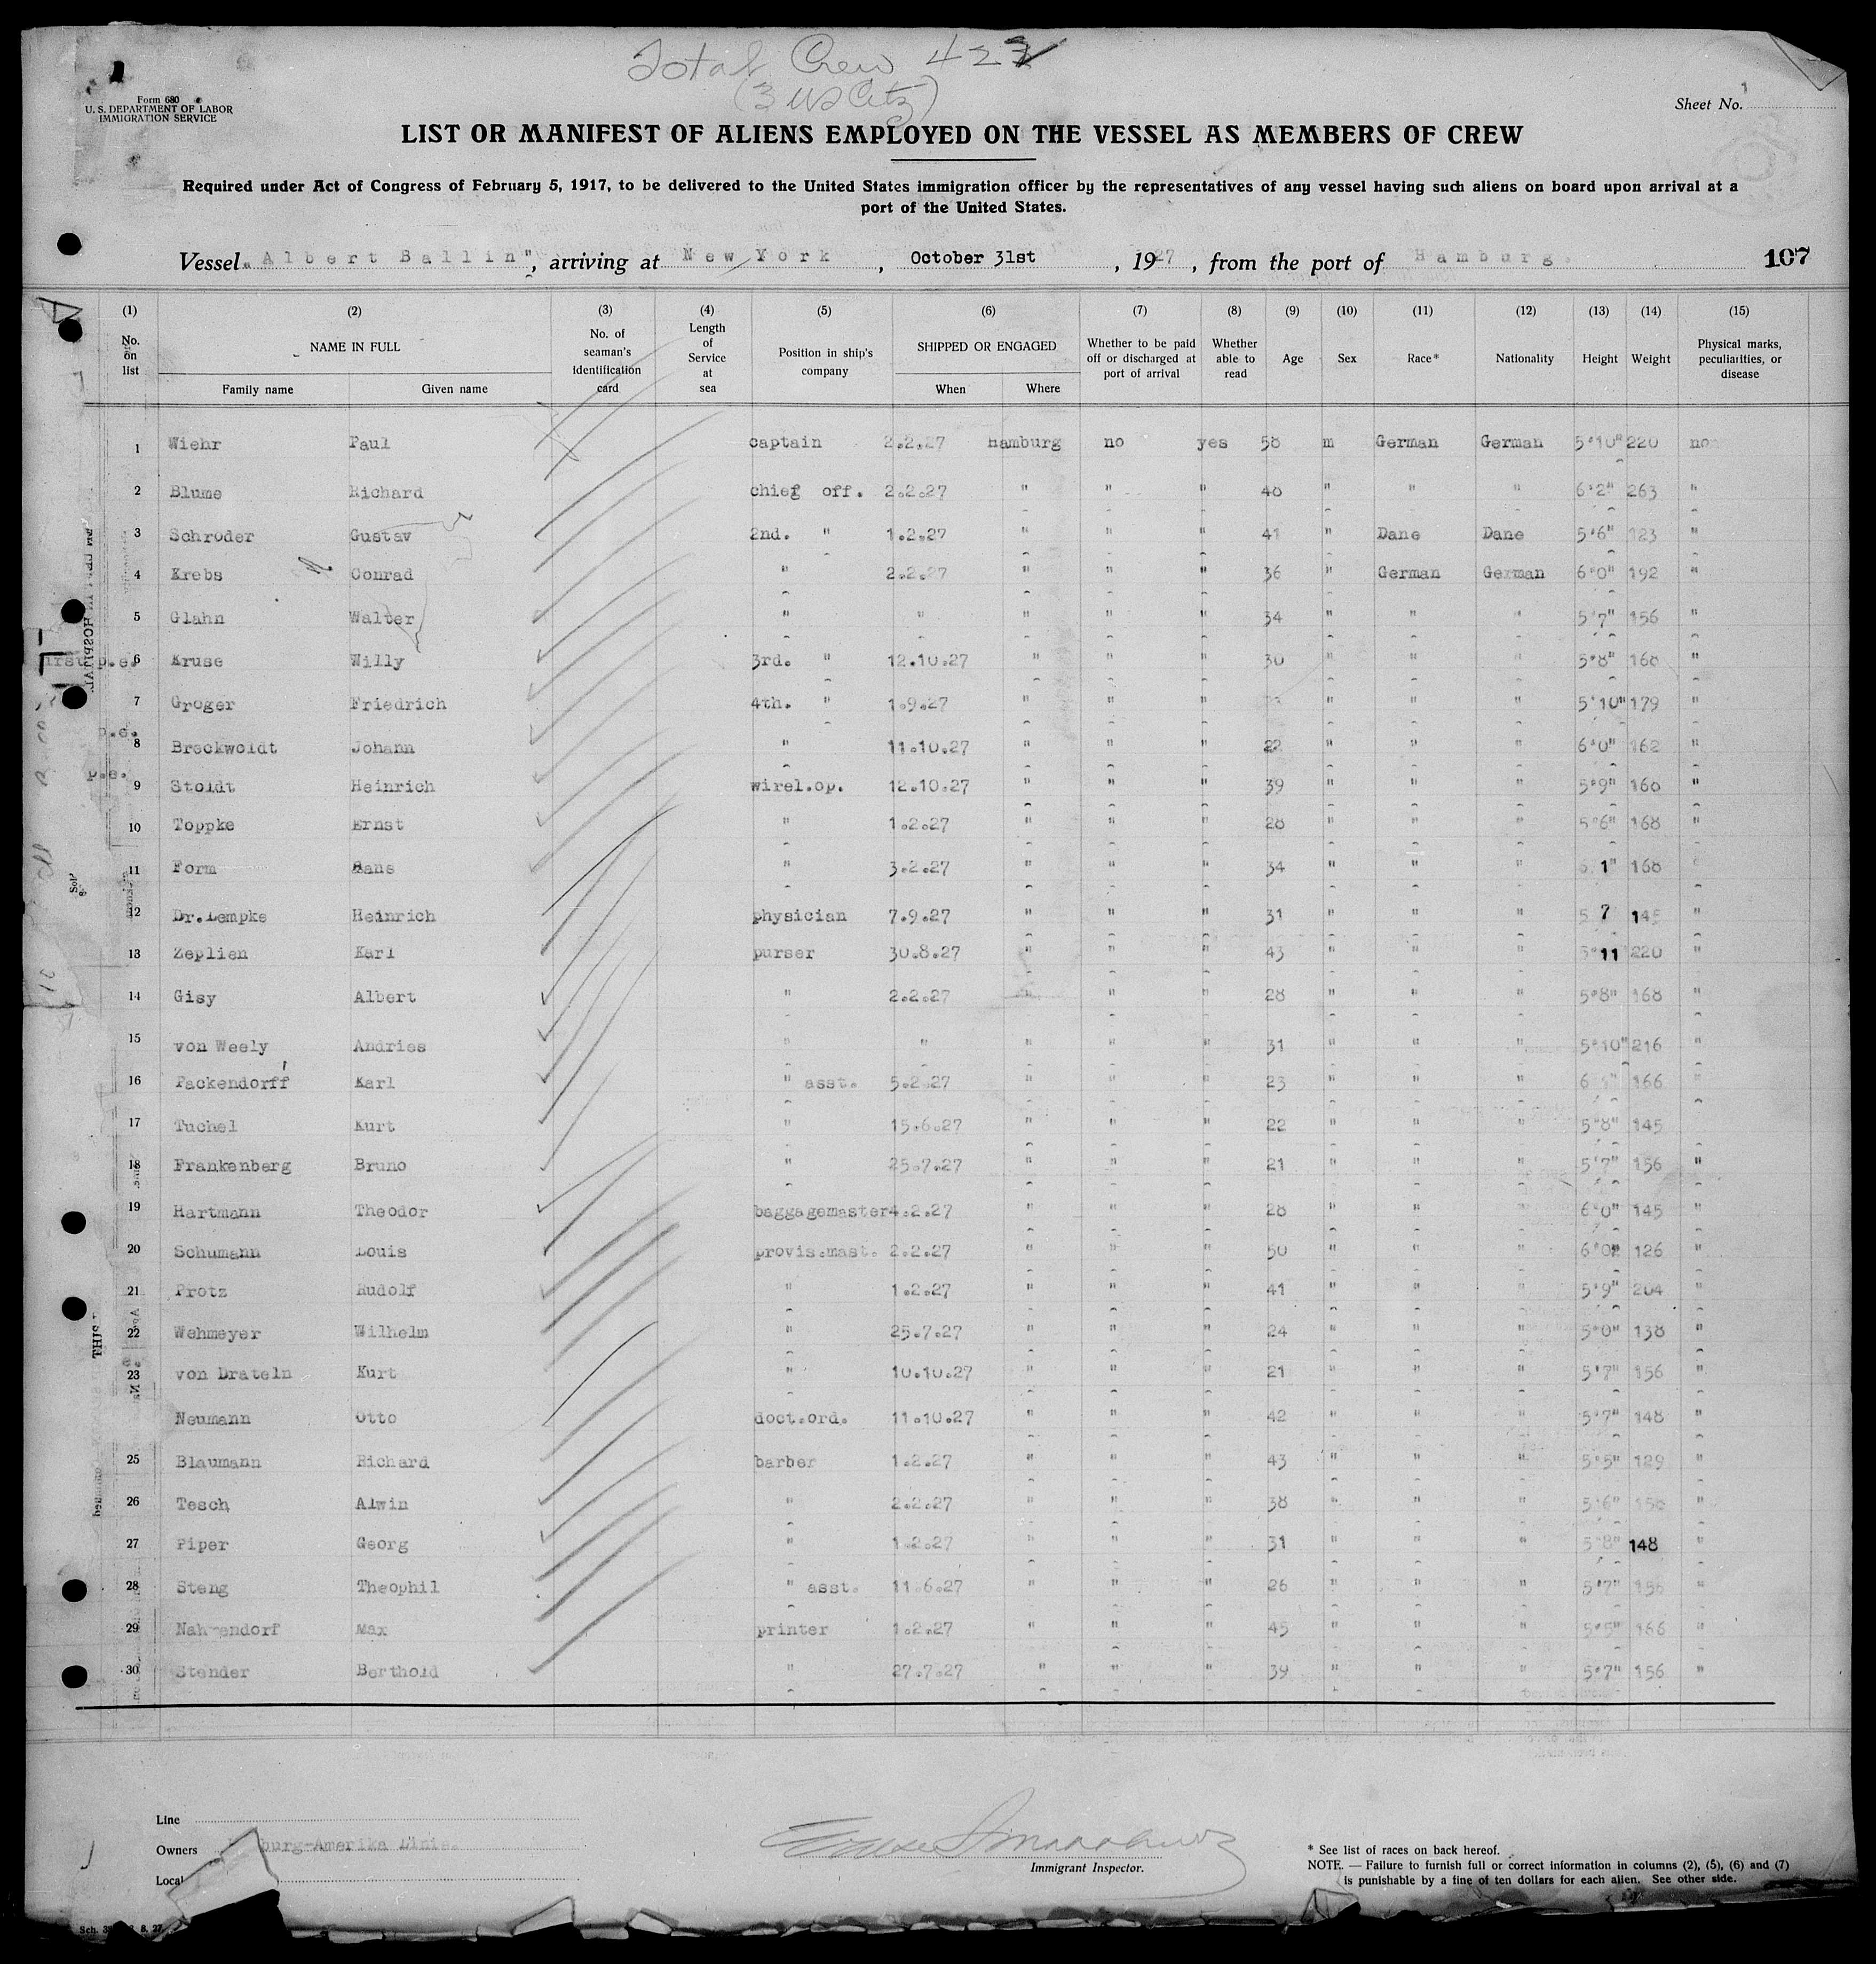 Total Crew 422
(3 US Citz)
Form 680
U. S. DEPARTMENT OF LABOR
IMMIGRATION SERVICE
Sheet No.
LIST OR MANIFEST OF ALIENS EMPLOYED ON THE VESSEL AS MEMBERS OF CREW
Required under Act of Congress of February 5, 1917, to be delivered to the United States immigration officer by the representatives of any vessel having such aliens on board upon arrival at a
port of the United States.
Vessel "Albert Ballin", arriving at New York, October 31st, 1927, from the port of Hamburg. 107
(1) (2) (3) (4) (5) (6) (7) (8) (9) (10) (11) (12) (13) (14) (15)
No. on list NAME IN FULL Family name Given name No. of seaman's identification card Length of Service at sea Position in ship's company SHIPPED OR ENGAGED When Where Whether to be paid off or discharged at port of arrival Whether able to read Age Sex Race* Nationality Height Weight Physical marks, peculiarities, or disease
1 Wiehr Paul captain 2.2.27 Hamburg no yes 58 m German German 5'10" 220 no
2 Blume Richard chief off. 2.2.27 " " " 48 " " " 6'2" 263 "
3 Schroder Gustav 2nd. " 1.2.27 " " " 41 " Dane Dane 5'6" 123 "
4 Krebs Conrad " 2.2.27 " " " 36 " German German 6'0" 192 "
5 Glahn Walter " " " " " 34 " " " 5'7" 156 "
p.e. 6 Kruse Willy 3rd. " 12.10.27 " " " 30 " " " 5'8" 168 "
7 Groger Friedrich 4th. " 1.9.27 " " " " " " 5'10" 179 "
p.e. 8 Breckwoldt Johann " 11.10.27 " " " 22 " " " 6'0" 162 "
p.e. 9 Stoldt Heinrich wirel.op. 12.10.27 " " " 39 " " " 5'9" 160 "
10 Toppke Ernst " 1.2.27 " " " 28 " " " 5'6" 168 "
11 Form Hans " 3.2.27 " " " 34 " " " 1" 168 "
12 Dr.Lempke Heinrich physician 7.9.27 " " " 31 " " " 5 7 145 "
13 Zeplien Karl purser 30.8.27 " " " 43 " " " 5'11 220 "
14 Gisy Albert " 2.2.27 " " " 28 " " " 5'8" 168 "
15 von Weely Andries " " " " " 31 " " " 5'10" 216 "
16 Packendorff Karl " asst. 5.2.27 " " " 23 " " " 6 166 "
17 Tuchel Kurt " 15.6.27 " " " 22 " " " 5'8" 145
18 Frankenberg Bruno " 25.7.27 " " " 21 " " " 5'7" 156 "
19 Hartmann Theodor baggagemaster 4.2.27 " " " 28 " " " 6'0" 145 "
20 Schumann Louis provis.mast. 2.2.27 " " " 50 " " " 6'0" 126 "
21 Protz Rudolf " 1.2.27 " " " 41 " " " 5'9" 204 "
22 Wehmeyer Wilhelm " 25.7.27 " " " 24 " " " 5'0" 138 "
23 von Drateln Kurt " 10.10.27 " " " 21 " " " 5'7" 156 "
Neumann Otto doct.ord. 11.10.27 " " " 42 " " " 5'7" 148 "
25 Blaumann Richard barber 1.2.27 " " " 43 " " " 5'5" 129 "
26 Tesch Alwin " 2.2.27 " " " 38 " " " 5'6" "
27 Piper Georg " 1.2.27 " " " 31 " " " 5'8" 148 "
28 Steng Theophil " asst. 11.6.27 " " " 26 " " " 5'7" 156 "
29 Nahrendorf Max printer 1.2.27 " " " 45 " " " 5'5" 166 "
30 Stender Berthold " 27.7.27 " " " 39 " " " 5'7" 156 "
Line
Owners burg-Amerika Linie.
Local
Immigrant Inspector.
* See list of races on back hereof.
NOTE. — Failure to furnish full or correct information in columns (2), (5), (6) and (7)
is punishable by a fine of ten dollars for each alien. See other side.